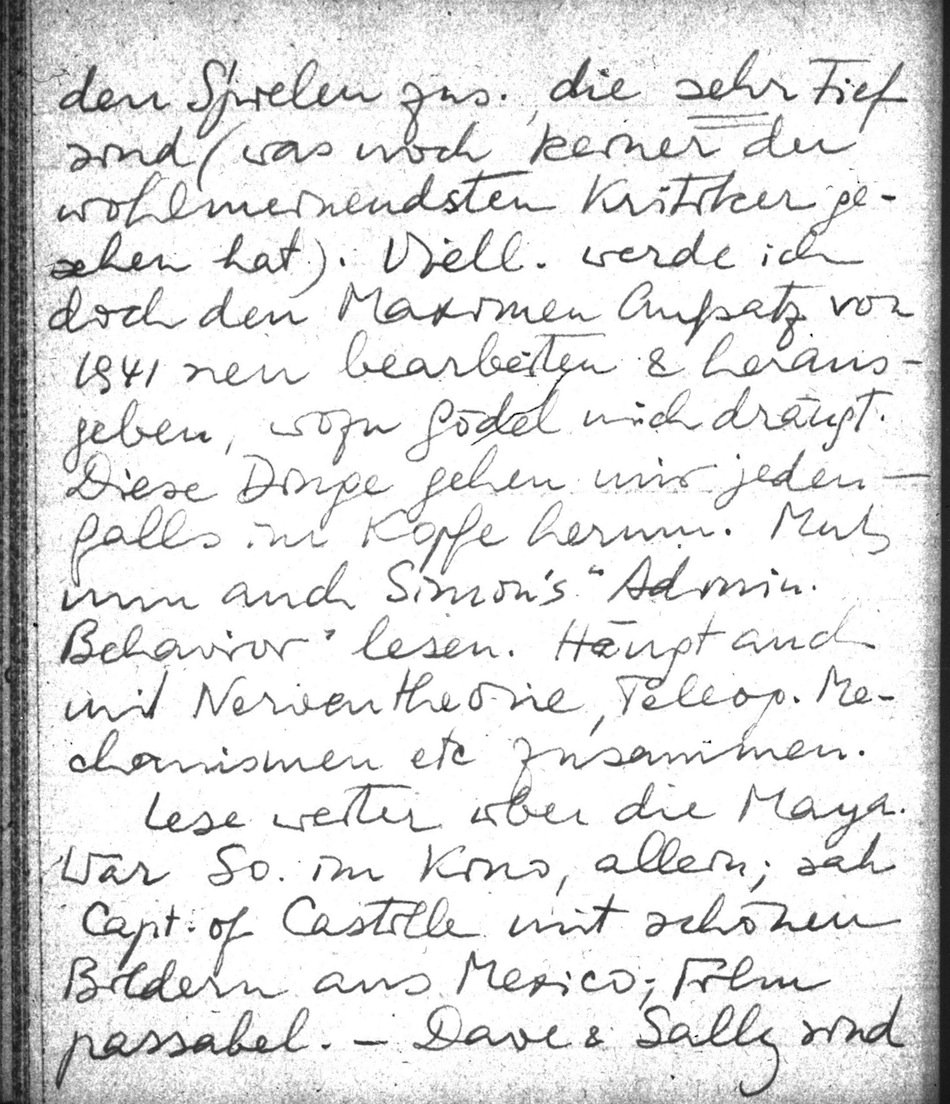 den Spielen zus., die sehr tief
sind (was noch keiner der
wohlmeinendsten Kritiker ge-
sehen hat). Viell. werde ich
doch den Maximen Aufsatz von
1941 neu bearbeiten & heraus-
geben, wozu Gödel mich drängt.
Diese Dinge gehen mir jeden-
falls im Kopfe herum. Muß
nun auch Simon's "Admin.
Behavior" lesen. Hängt auch
mit Nerventheorie, Teleop. Me-
chanismen etc zusammen.
Lese weiter über die Maya.
War So. im Kino, allein; sah
Capt. of Castille mit schönen
Bildern aus Mexico; Film
passabel. – Dave & Sally sind